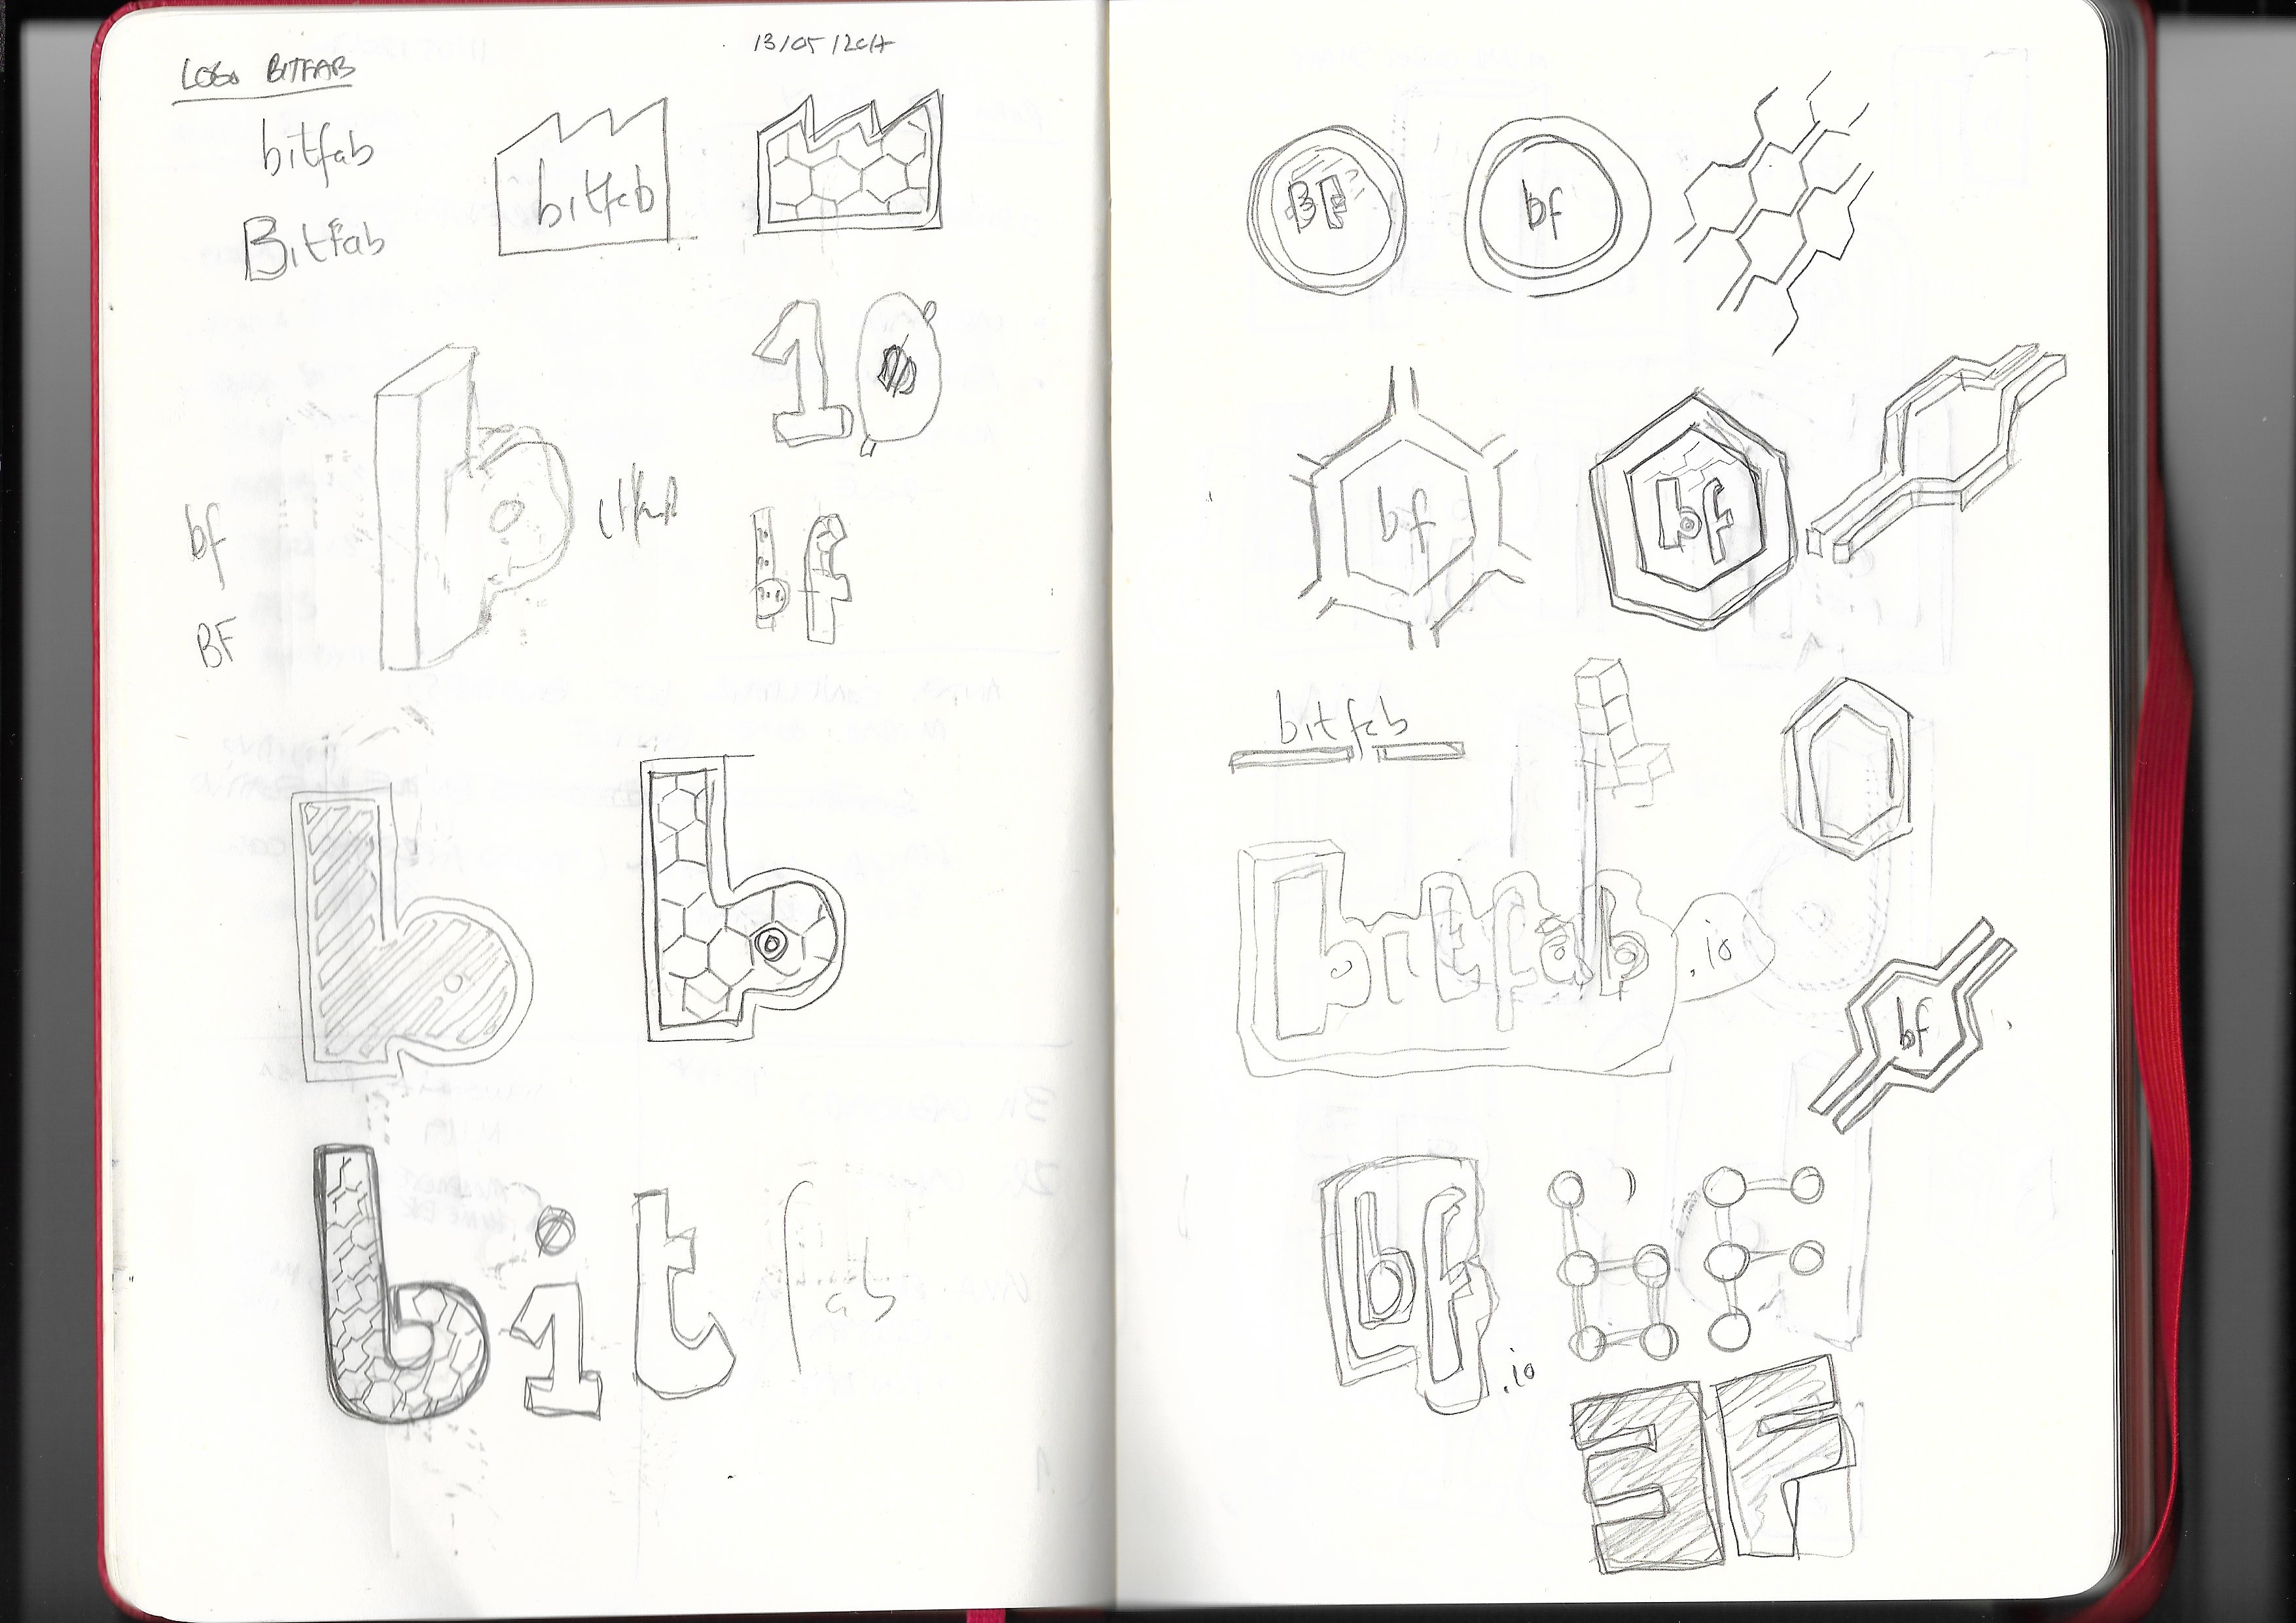 LOGO BITFAB
bitfab
Bitfab
bitfab
10
bf
BF
bf
b
b
b
bit fab
BF
bf
bf
bf
bitfab
bitfab .io
bf
bf
.io
bF
BF